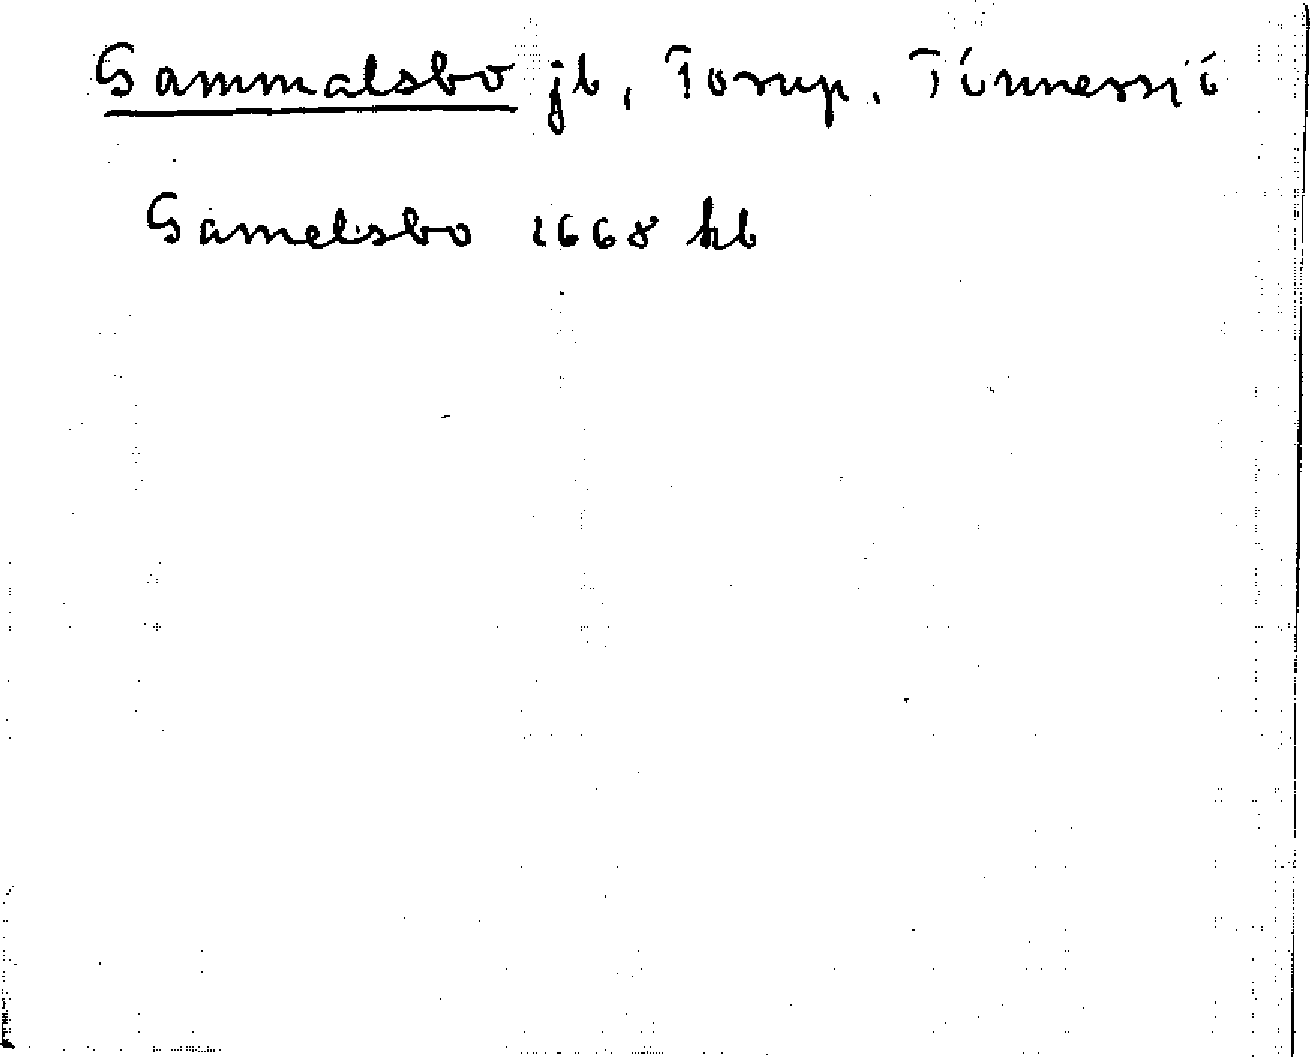 Gammalsbo jb, Torup, Tönnersjö
Gamelsbo 1668 hb